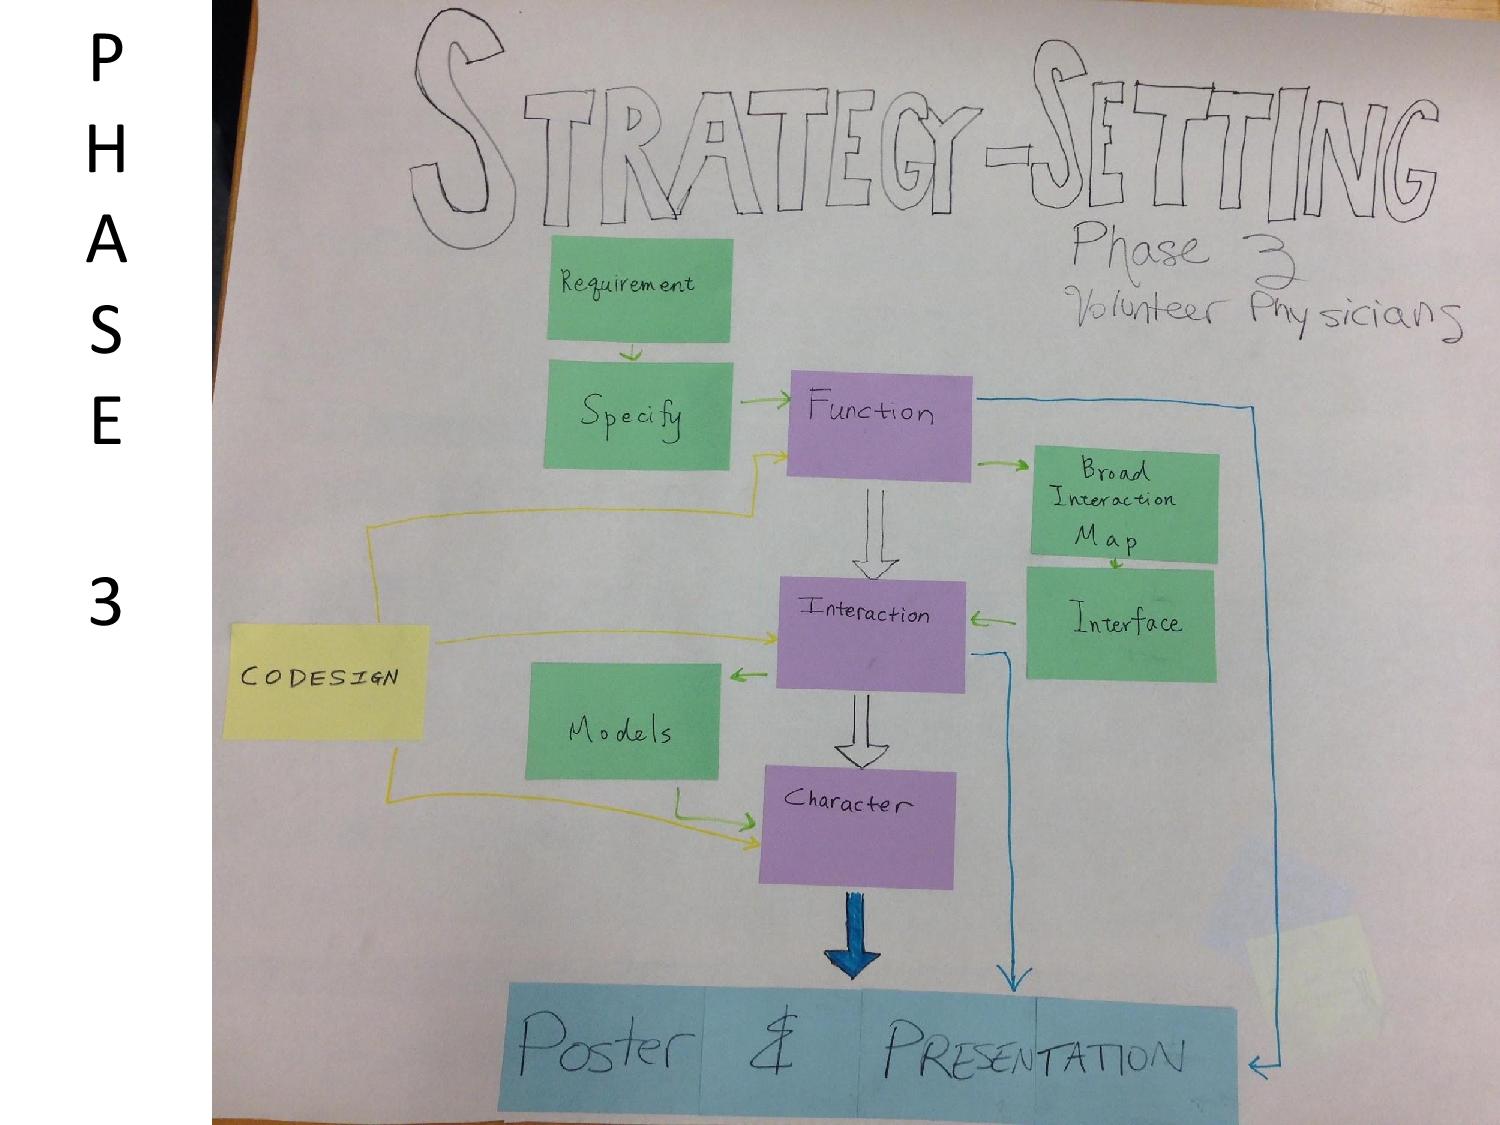 P
H
A
S
E
3
STRATEGY-SETTING
Phase 3
Volunteer Physicians
Requirement
Specify
Function
Broad
Interaction
Map
Interaction
Interface
CODESIGN
Models
Character
Poster & PRESENTATION